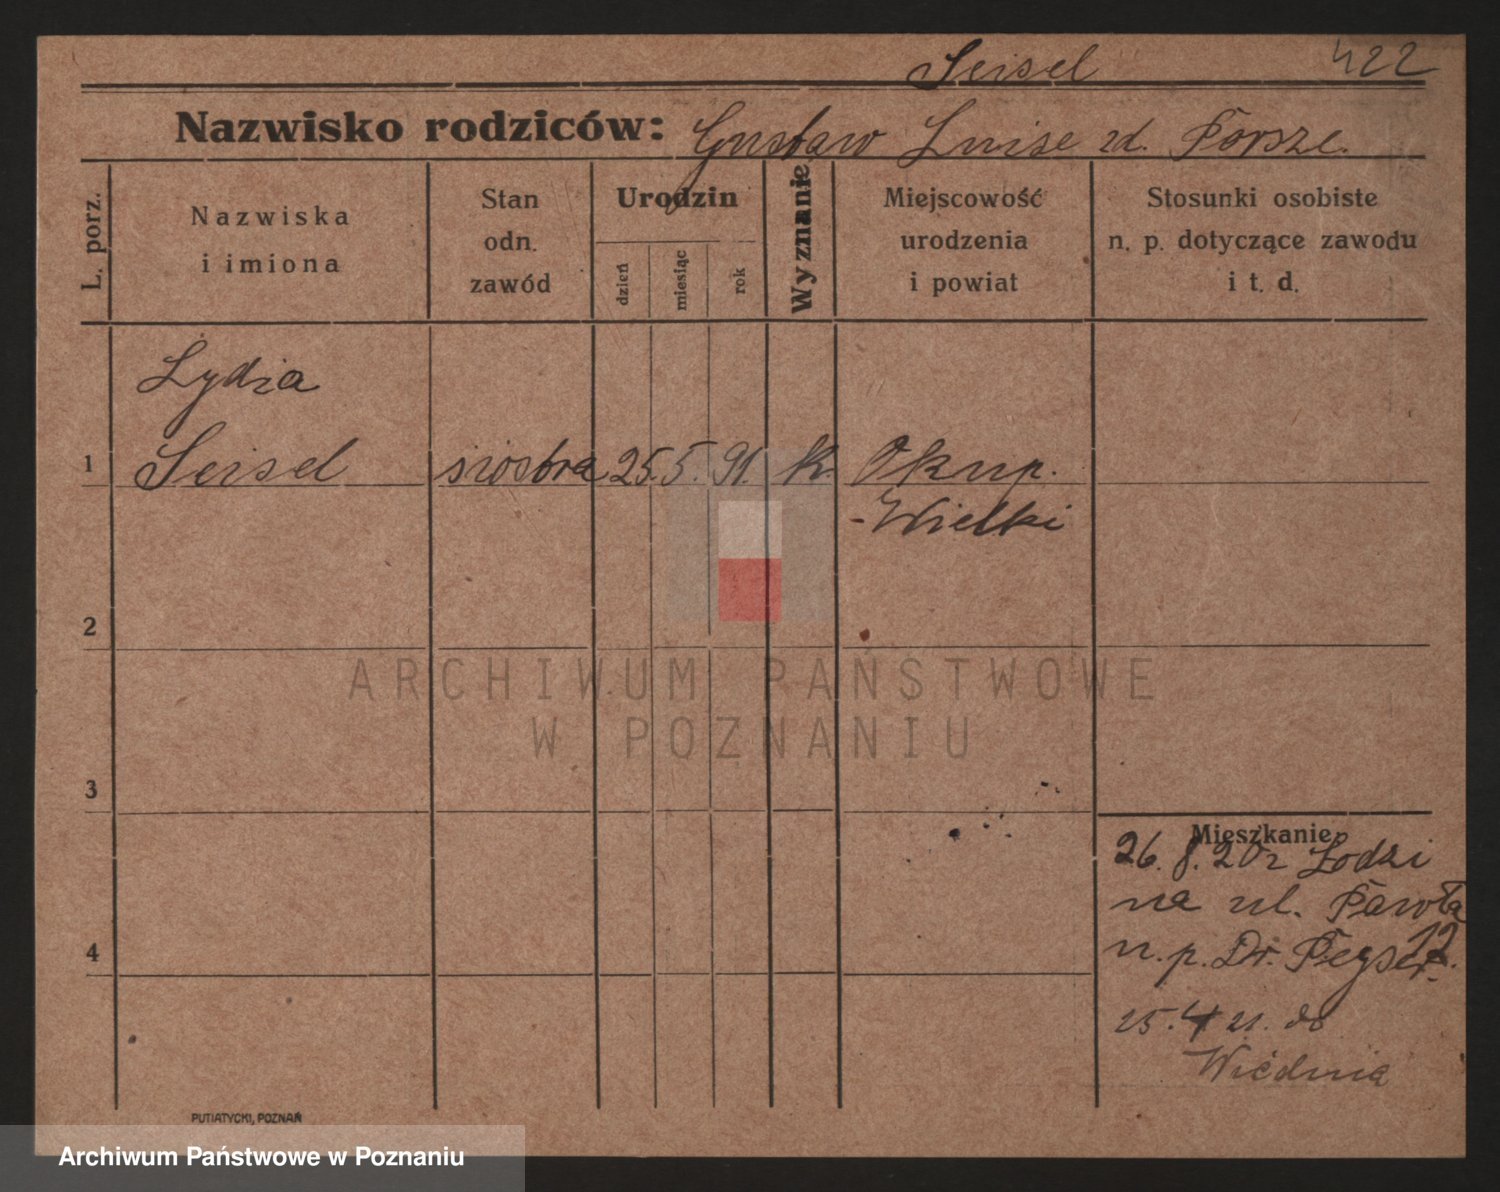 Seisel 422
Nazwisko rodziców: Gustaw Luise zd. Porsze.
L. porz.
Nazwiska
i imiona
Stan
odn.
zawód
Urodzin
dzień
miesiąc
rok
Wyznanie
Miejscowość
urodzenia
i powiat
Stosunki osobiste
n. p. dotyczące zawodu
i t. d.
Lydia
1 Seisel siostra 25. 5. 91. k. Okup.
-Wielki
2
ARCHIWUM PAŃSTWOWE
W POZNANIU
3
Mieszkanie
26. 8. 20 z Łodzi
na ul. Pawła
12.
n. p. Dr. Peyser.
4
25. 4 21. do
Wiednia
PUTIATYCKI, POZNAŃ
Archiwum Państwowe w Poznaniu